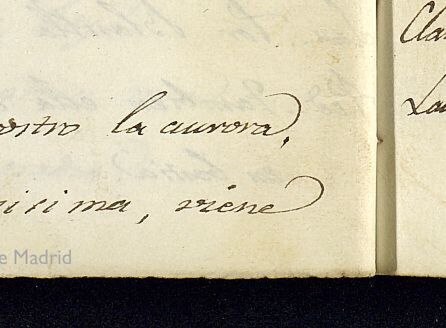 ostro la aurora,
isima, viene
e Madrid
Cla
La